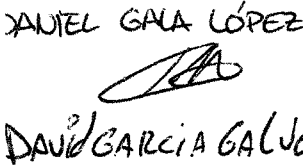 DANIEL GALA LÓPEZ
DAVID GARCIA GALV